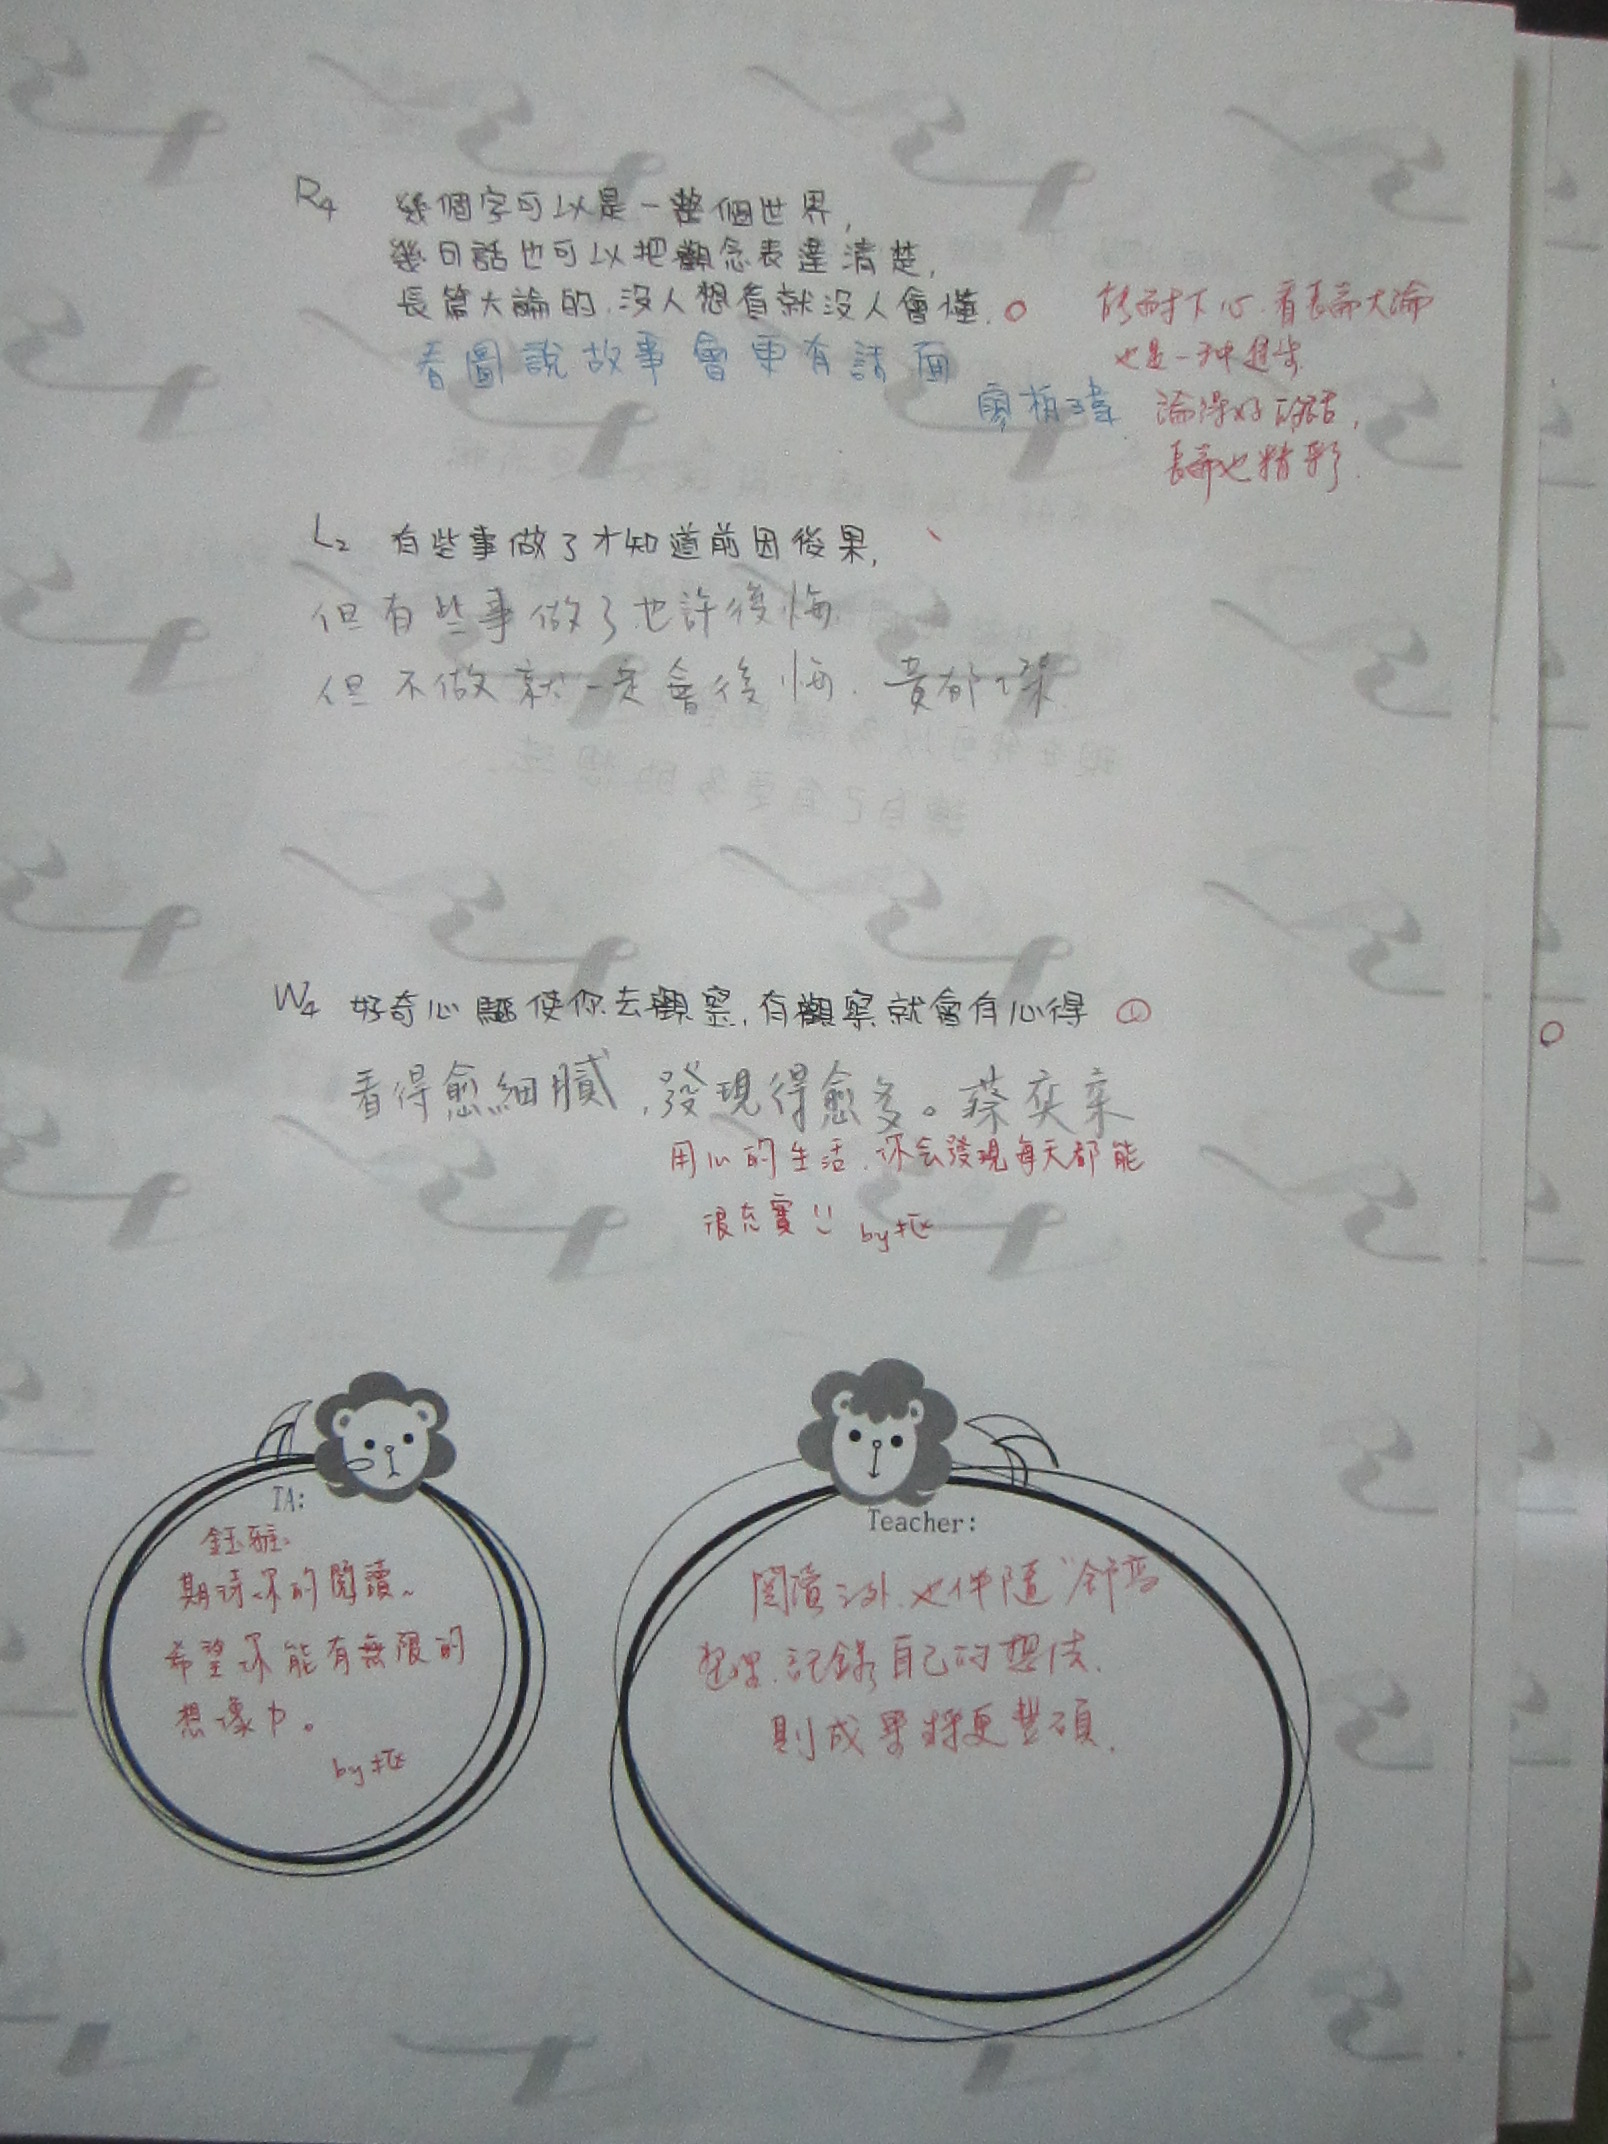 R4 幾個字可以是一整個世界,
幾句話也可以把觀念表達清楚,
長篇大論的,沒人想看就沒人會懂.
能耐下心.看長篇大論
也是一种進步
看圖說故事會更有話面
廖柏瑋
論得好的話,
長篇也精彩.
L2 有些事做了才知道前因後果,
但有些事做了也許後悔
但不做就一定會後悔.黃郁
W4 好奇心驅使你去觀察,有觀察就會有心得
看得愈細膩,發現得愈多。蔡奕
用心的生活.你会發現每天都能
很充實!! by
TA:
鈺雅:
期待你的閱讀~
希望你能有無限的
想像力。
by
Teacher:
閱讀之外.也伴隨
記錄自己的想法.
則成果將更豐碩.